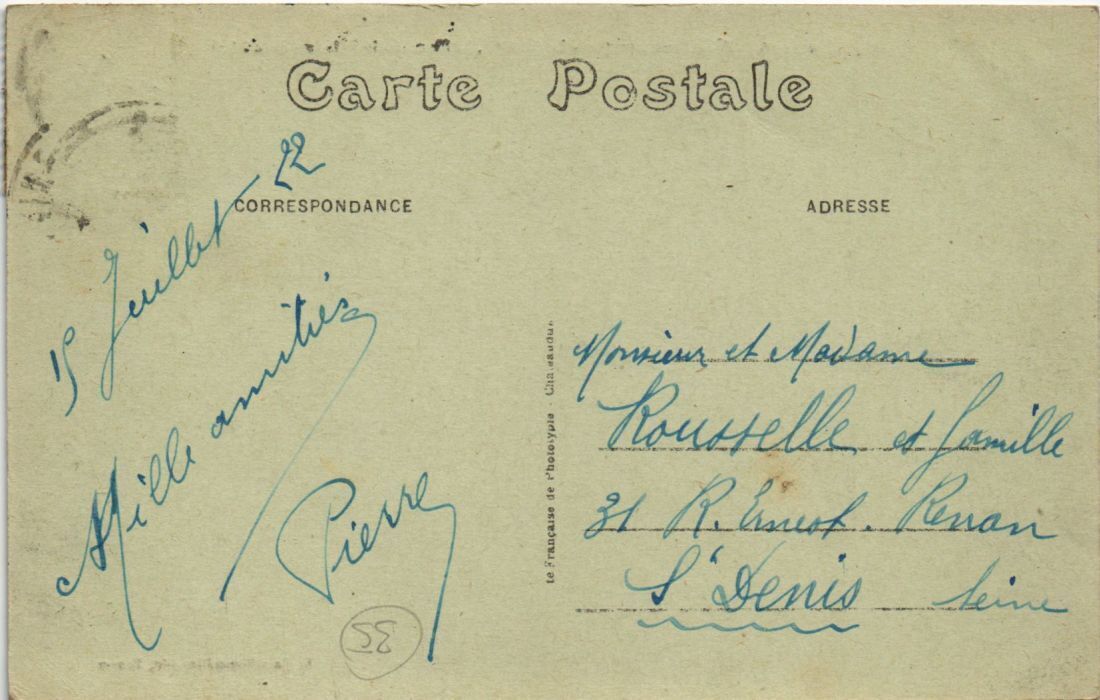 Carte Postale
CORRESPONDANCE
ADRESSE
15 Juillet 22
Mille amitiés
Pierre
Monsieur et Madame
Rousselle et famille
31 R. Ernest. Renan
St Denis Seine
ie Française de Phototypie - Chateaudun
35